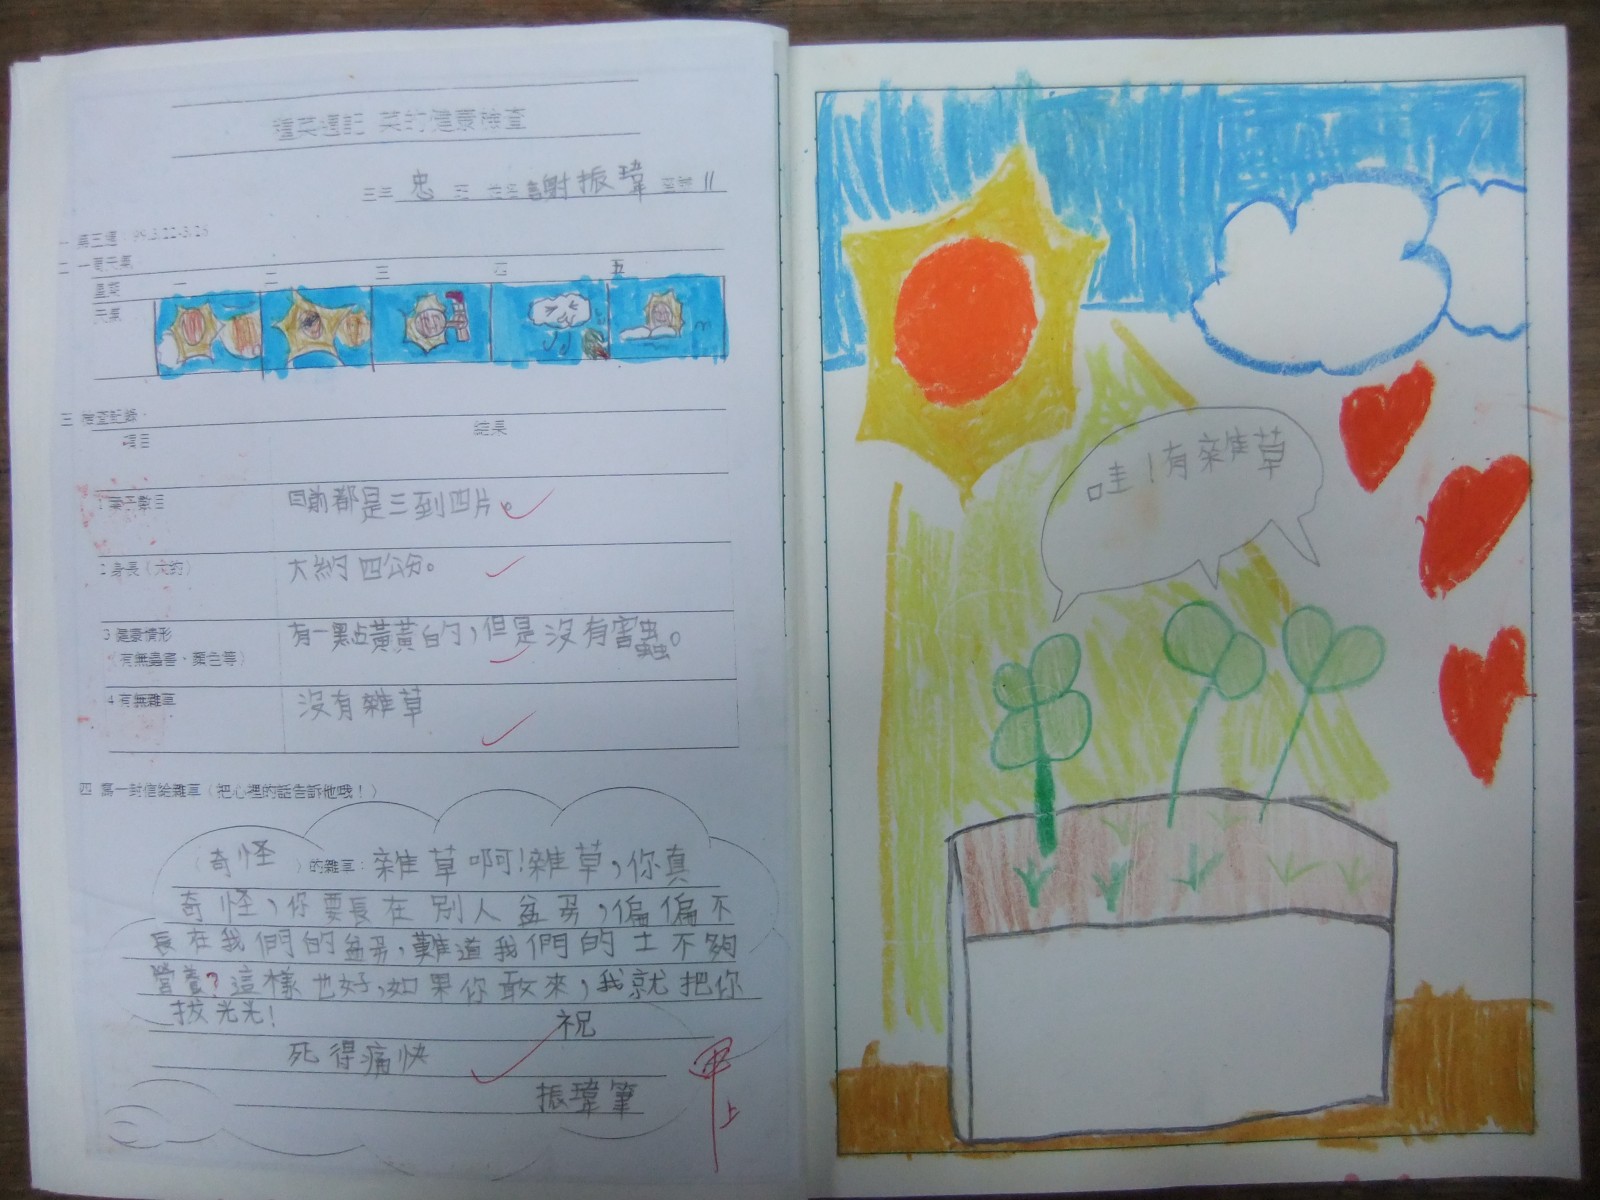 種菜週記 菜的健康檢查
三年 忠 班 姓名 謝振瑋 座號 11
一 第三週：99.3.22-3.26
二 一周天氣
星期 一 二 三 四 五
天氣
三 檢查記錄：
項目 結果
1 葉子數目 目前都是三到四片。
2 身長（大約） 大約四公分。
3 健康情形
（有無蟲害、顏色等） 有一點點黃黃的，但是沒有害蟲。
4 有無雜草 沒有雜草
四 寫一封信給雜草（把心裡的話告訴他哦！）
（奇怪）的雜草：雜草啊!雜草，你真
奇怪，你要長在別人盆子，偏偏不
長在我們的盆子，難道我們的土不夠
營養？這樣也好，如果你敢來，我就把你
拔光光!
祝
死得痛快
振瑋筆
甲上
哇！有雜草